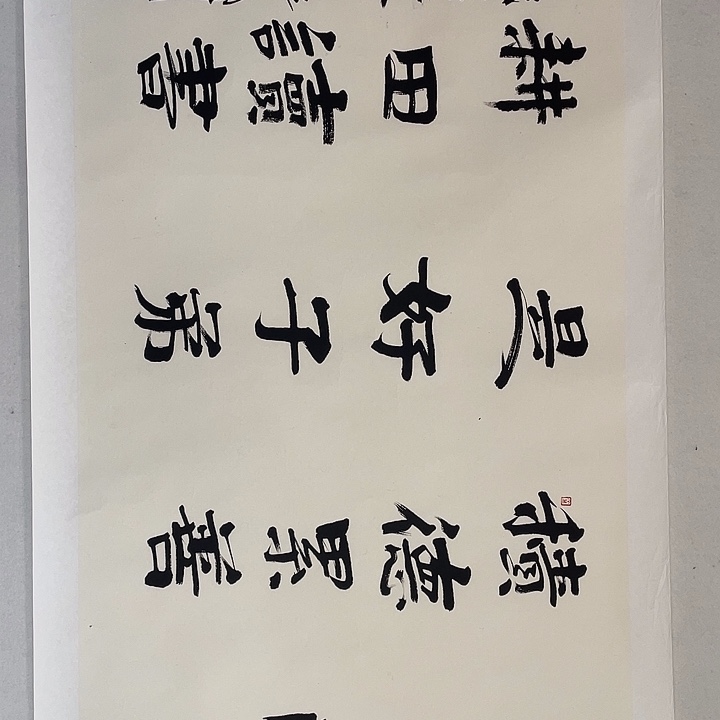 積德累善
是好子弟
耕田讀書